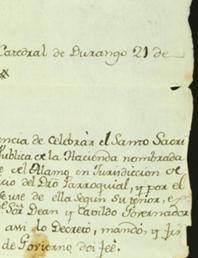 Catedral de Durango 21 de
encia de Celebrar el Santo Sacri
Publica de la Hacienda nombrada
e el Alamo en Jurisdiccion
cio del Dro Parroquial, y por el
de ella segun su tenor,
Sor Dean y Cavildo Governador
asi lo Decretó, mandó, y fir
de Govierno doi feé.